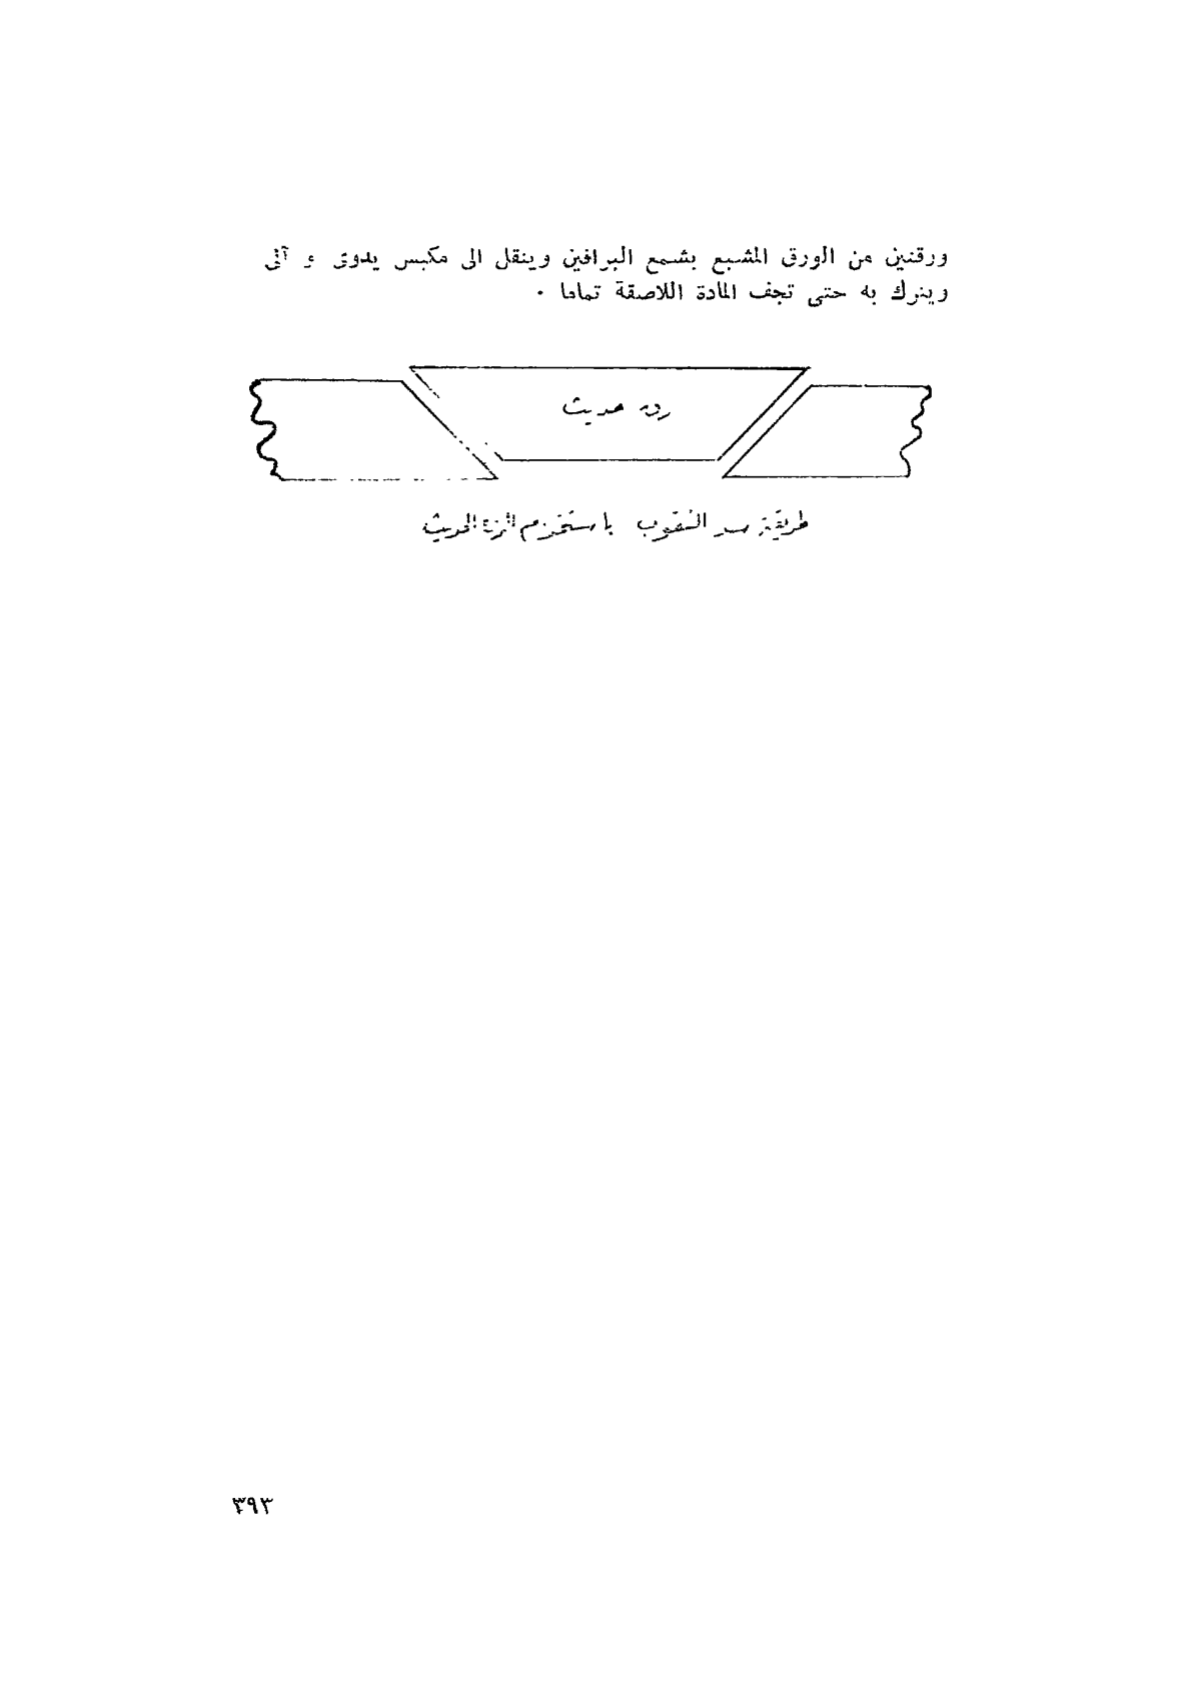 ورقتين من الورق المشبع بشمع البرافين وينقل الى مكبس يدوى و آلى
ويترك به حتى تجف المادة اللاصقة تماما ٠
رق حديث
طريقة سد الثقوب باستخدام الرق الحديث
٣٩٣